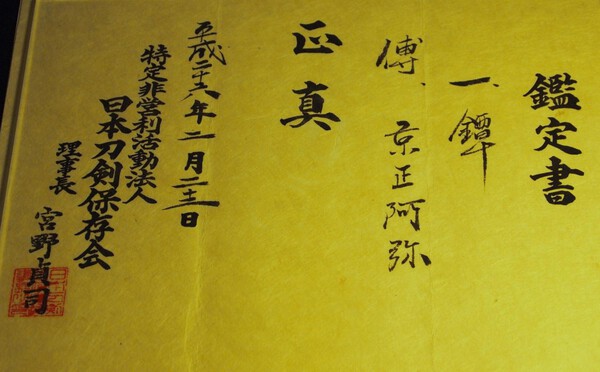 鑑定書
一、鐔
傳、京正阿弥
正真
平成二十六年二月二十三日
特定非営利活動法人
日本刀剣保存会
理事長 宮野貞司